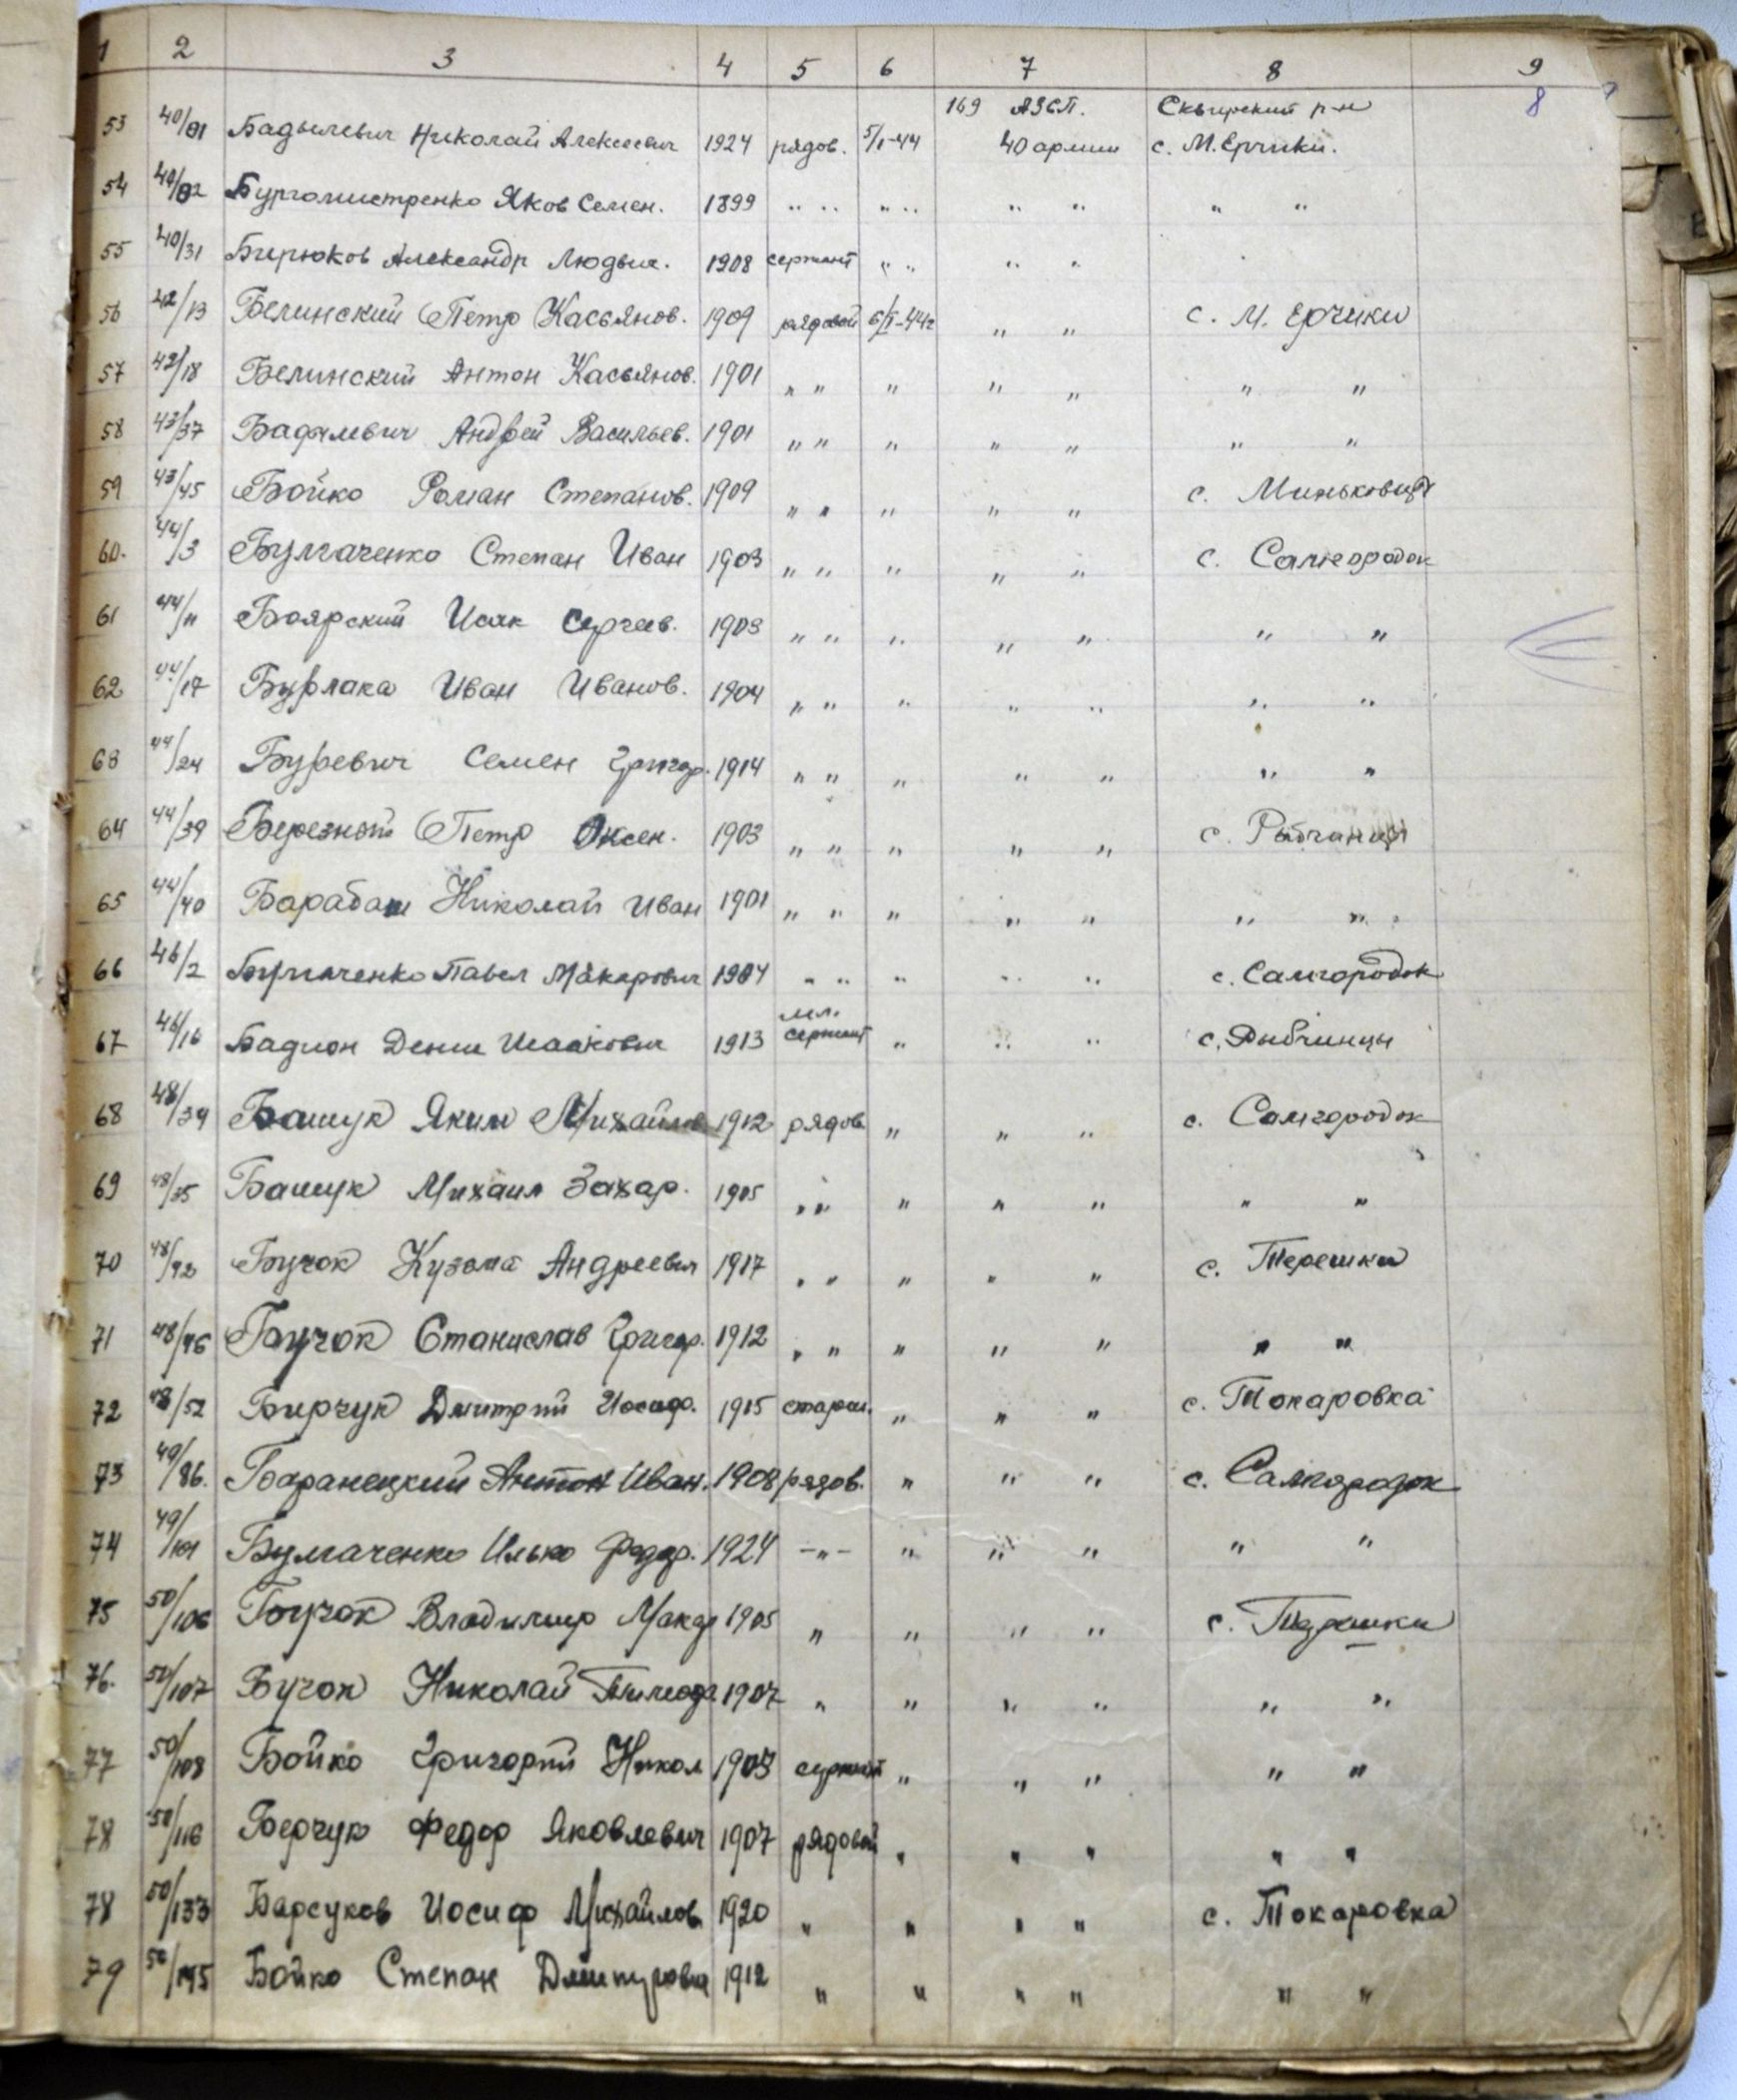 1 2 3 4 5 6 7 8 9
169 АЗСП. Сквирский р-н 8
53 40/81 Бадылевич Николай Алексеевич 1924 рядов. 5/I-44 40 армии с. М. Ерчики.
54 40/82 Бургомистренко Яков Семен. 1899 " " " " " " " "
55 40/31 Бирюков Александр Людвиг. 1908 сержант " " " "
56 42/13 Белинский Петр Касьянов. 1909 рядовой 6/I-44г " " с. М. Ерчики
57 42/18 Белинский Антон Касьянов. 1901 " " " " " " "
58 43/37 Бадылевич Андрей Васильев. 1901 " " " " " " "
59 43/45 Бойко Роман Степанов. 1909 " " " " " с. Миньковцы
60. 44/3 Булгаченко Степан Иван 1903 " " " " " с. Самгородок
61 44/11 Боярский Исак Сергеев. 1903 " " " " " " "
62 44/17 Бурлака Иван Иванов. 1904 " " " " " " "
63 44/24 Буревич Семен Григор. 1914 " " " " " " "
64 44/39 Березной Петр Оксен. 1903 " " " " " с. Рибчинци
65 44/40 Барабаш Николай Иван 1901 " " " " " " "
66 46/2 Булгаченко Павел Макарович 1904 " " " " " с. Самгородок
мл.
67 46/16 Бадион Денис Исаакович 1913 сержант " " " с. Рыбчинцы
68 48/34 Башук Яким Михайлов 1912 рядов " " " с. Самгородок
69 48/35 Башук Михаил Захар. 1905 " " " " " " "
70 48/92 Бучок Кузьма Андреевич 1917 " " " " " с. Терешки
71 48/96 Бучок Станислав Григор. 1912 " " " " " " "
72 48/52 Бирчук Дмитрий Иосиф. 1915 старш. " " " с. Токаровка
73 49/86. Баранецкий Антон Иван. 1908 рядов. " " " с. Самгородок
74 49/101 Булгаченко Илько Федор. 1924 -"- " " " " "
75 50/106 Бучок Владимир Макар 1905 " " " " с. Терешки
76. 50/107 Бучок Николай Тимофе 1907 " " " " " "
77 50/108 Бойко Григорий Никол 1903 сержант " " " " "
78 50/116 Берчук Федор Яковлевич 1907 рядовой " " " " "
78 50/133 Барсуков Иосиф Михайлов 1920 " " " " с. Токаровка
79 50/145 Бойко Степан Дмитрович 1912 " " " " " "